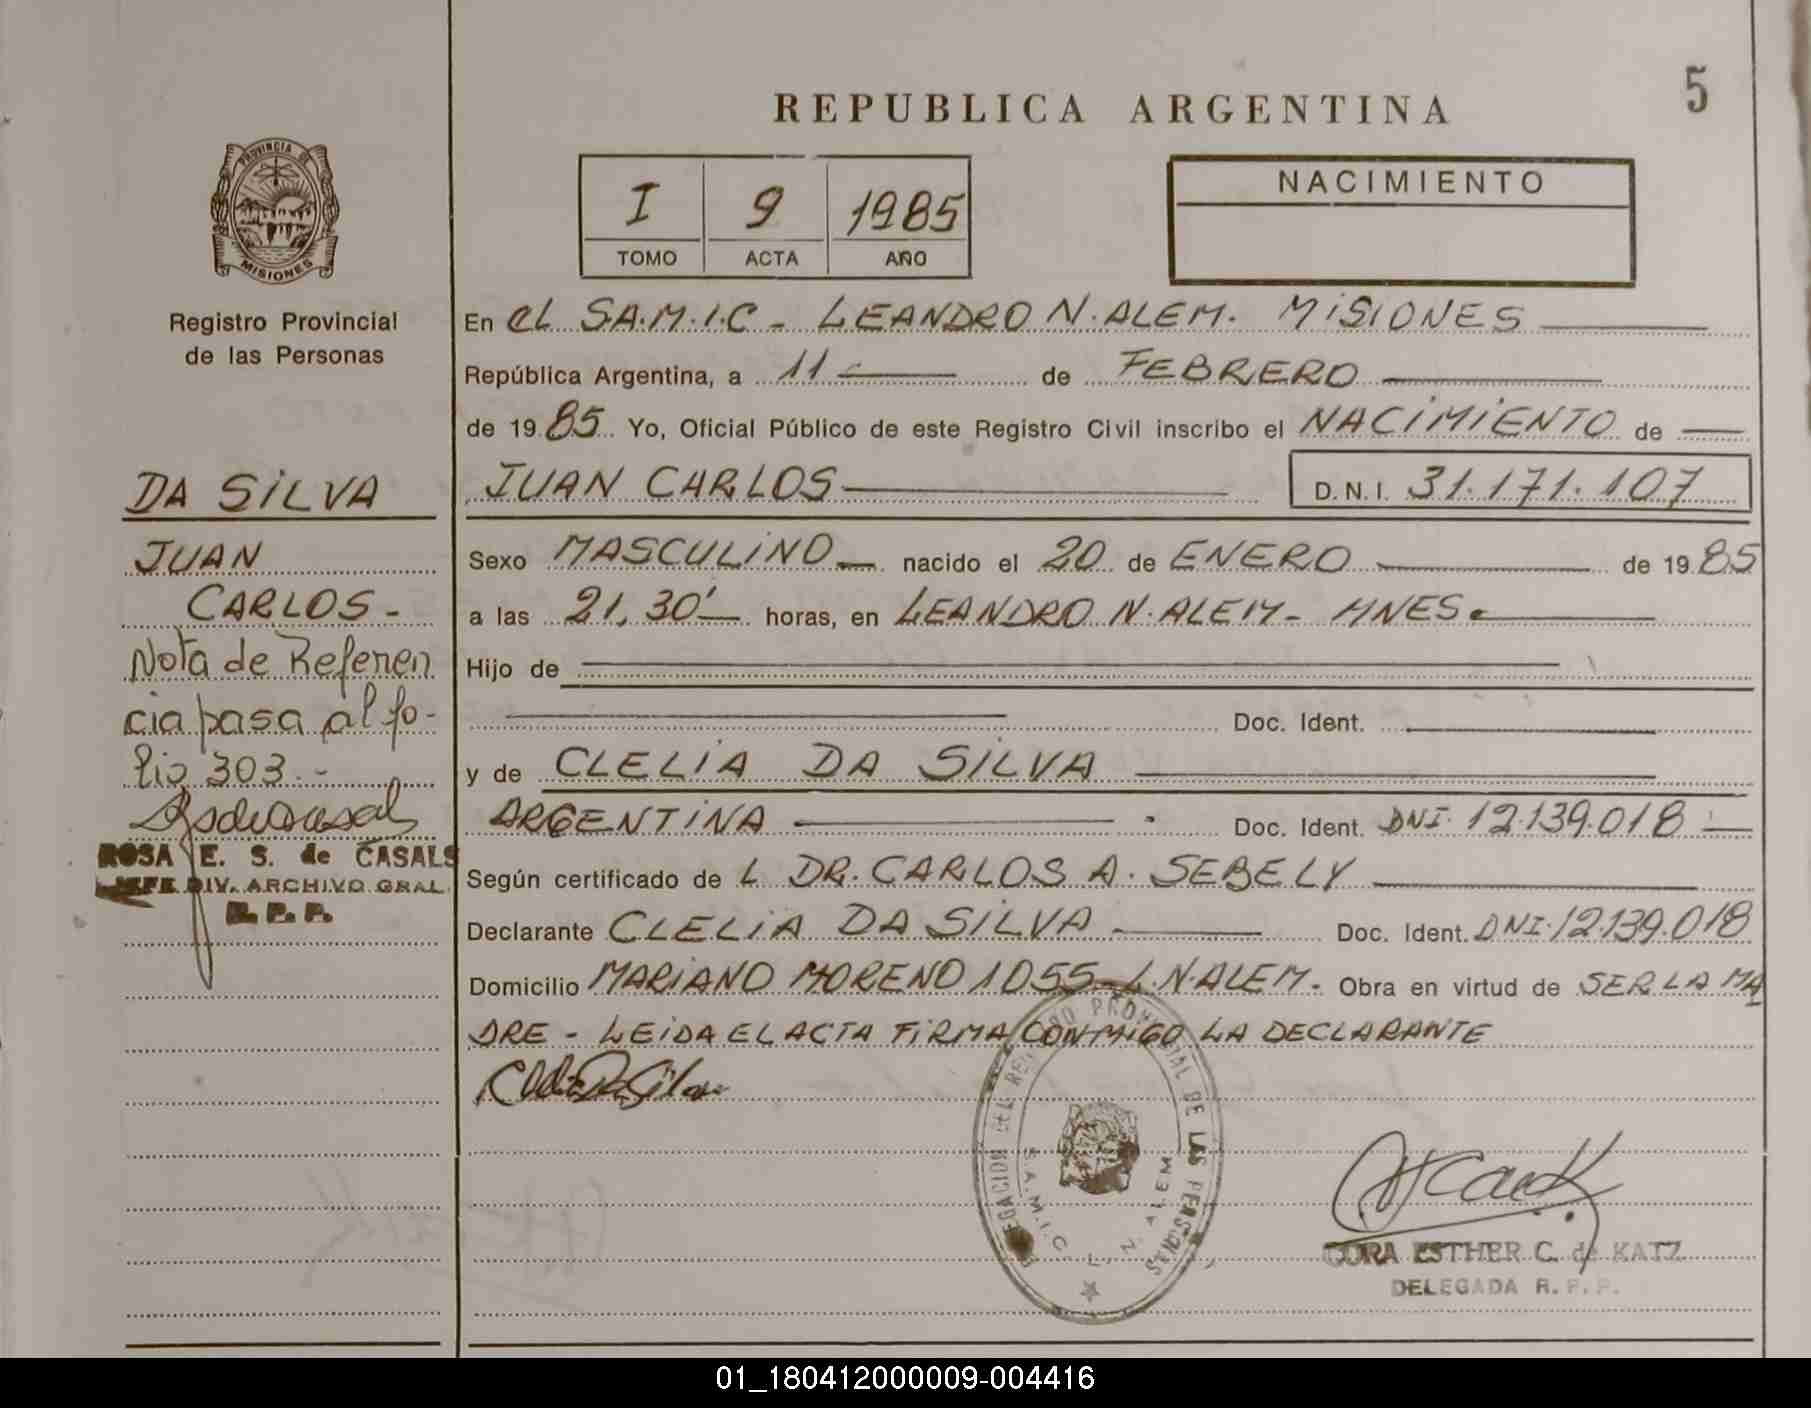 5
REPUBLICA ARGENTINA
PROVINCIA DE
MISIONES
Registro Provincial
de las Personas
I 9 1985
TOMO ACTA AÑO
NACIMIENTO
En EL S.A.M.I.C - LEANDRO N. ALEM. MISIONES
República Argentina, a 11 de FEBRERO
de 1985 Yo, Oficial Público de este Registro Civil inscribo el NACIMIENTO de
JUAN CARLOS D.N.I. 31.171.107
Sexo MASCULINO nacido el 20 de ENERO de 1985
a las 21,30' horas, en LEANDRO N. ALEM - MNES.
Hijo de
Doc. Ident.
y de CLELIA DA SILVA
ARGENTINA Doc. Ident. DNI. 12.139.018
Según certificado de L DR. CARLOS A. SEBELY
Declarante CLELIA DA SILVA Doc. Ident. DNI. 12.139.018
Domicilio MARIANO MORENO 1055 - L.N. ALEM. Obra en virtud de SER LA MA
DRE - LEIDA EL ACTA FIRMA CONMIGO LA DECLARANTE
Clelia Da Silva
DELEGACION DEL REGISTRO PROVINCIAL DE LAS PERSONAS
S.A.M.I.C. L. N. ALEM
CORA ESTHER C. de KATZ
DELEGADA R. P. P.
DA SILVA
JUAN
CARLOS -
Nota de Referen
cia pasa al fo-
lio 303.-
ROSA E. S. de CASALS
JEFE DIV. ARCHIVO GRAL.
R. P. P.
01_180412000009-004416